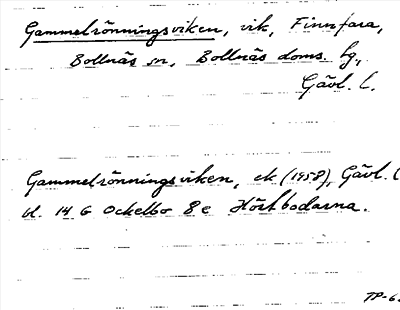 Gammelrönningsviken, vik, Finnfara,
Bollnäs sn, Bollnäs doms. hg,
Gävl. l.
Gammelrönningsviken, ek (1958), Gävl. l
bl. 14 G Ockelbo 8 e Höstbodarna.
TP-6